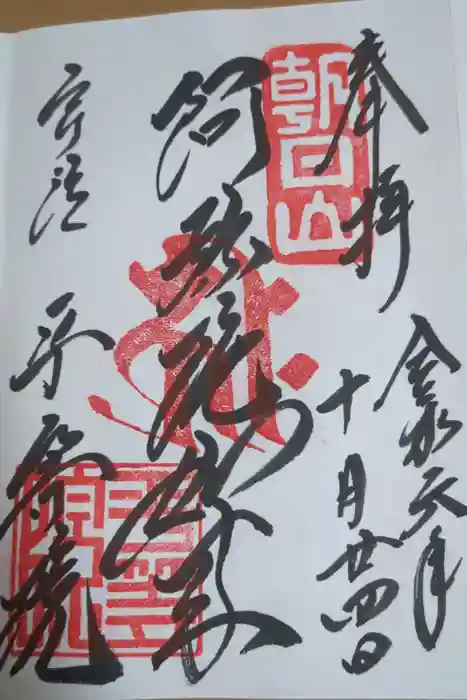 奉拝
朝日山
令和元年
十月廿四日
阿弥陀如来
宇治 平等院